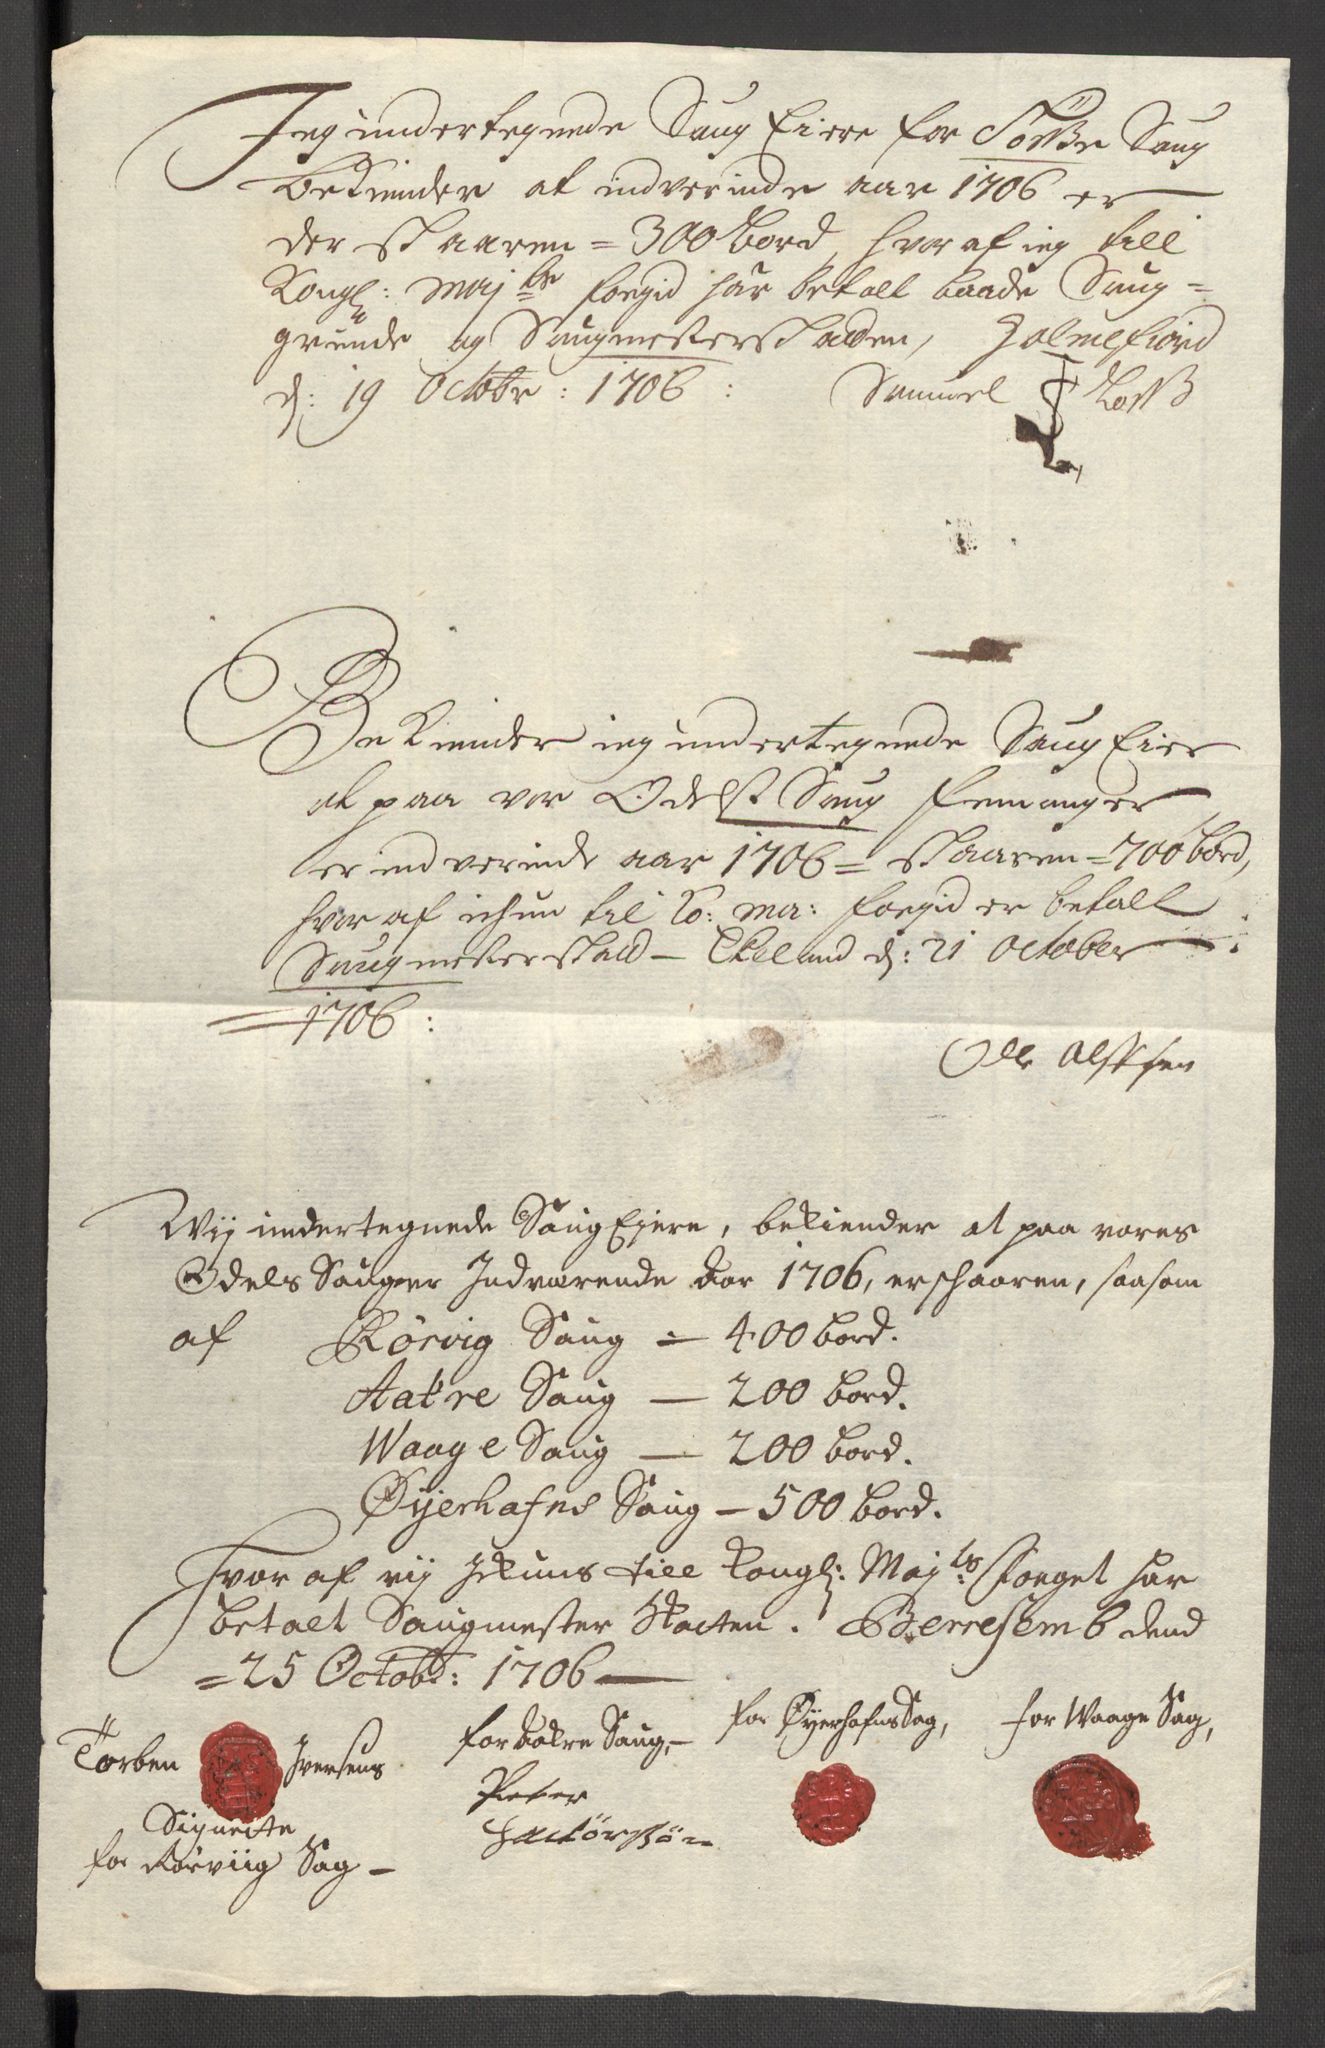 Jeg undertegnede Saug Eiere for Torße Saug
bekiender at indverinde aar 1706 er
der skaaren = 300 bord, hvor af ieg till
Kongl: Maj.ts fogid har betalt baade Saug=
grunde og Saugmesterskatten, Holmefiord
d: 19 Octobr: 1706: Samuel
Bekiender ieg undertegnede Saug Eier
at paa vor Odelß Saug Femanger
er indverinde aar 1706 = skaaren = 700 bord,
hvor af ichun til Ko: Ma: fogid er betalt
Saugmesterskatt – d: 21 October
1706:
Ole
Wij undertegnede Saug Ejere, bekiender at paa vores
Odels Sauger Indværende Aar 1706, er schaaren, saasom
af Rörvig Saug = 400 bord.
Aakre Saug — 200 bord.
Waage Saug — 200 bord.
Øyerhafns Saug – 500 bord.
Hvor af vij Ickuns till Kongl: Maj.ts Foeget har
betalt Saugmester Skatten. dend
=25 Octob.: 1706 —
Torben Iversens
Signette
for Rörviig Sag –
for Aakre Saug, –
Peter
for Øyerhafns Sag,
for Waage Sag,